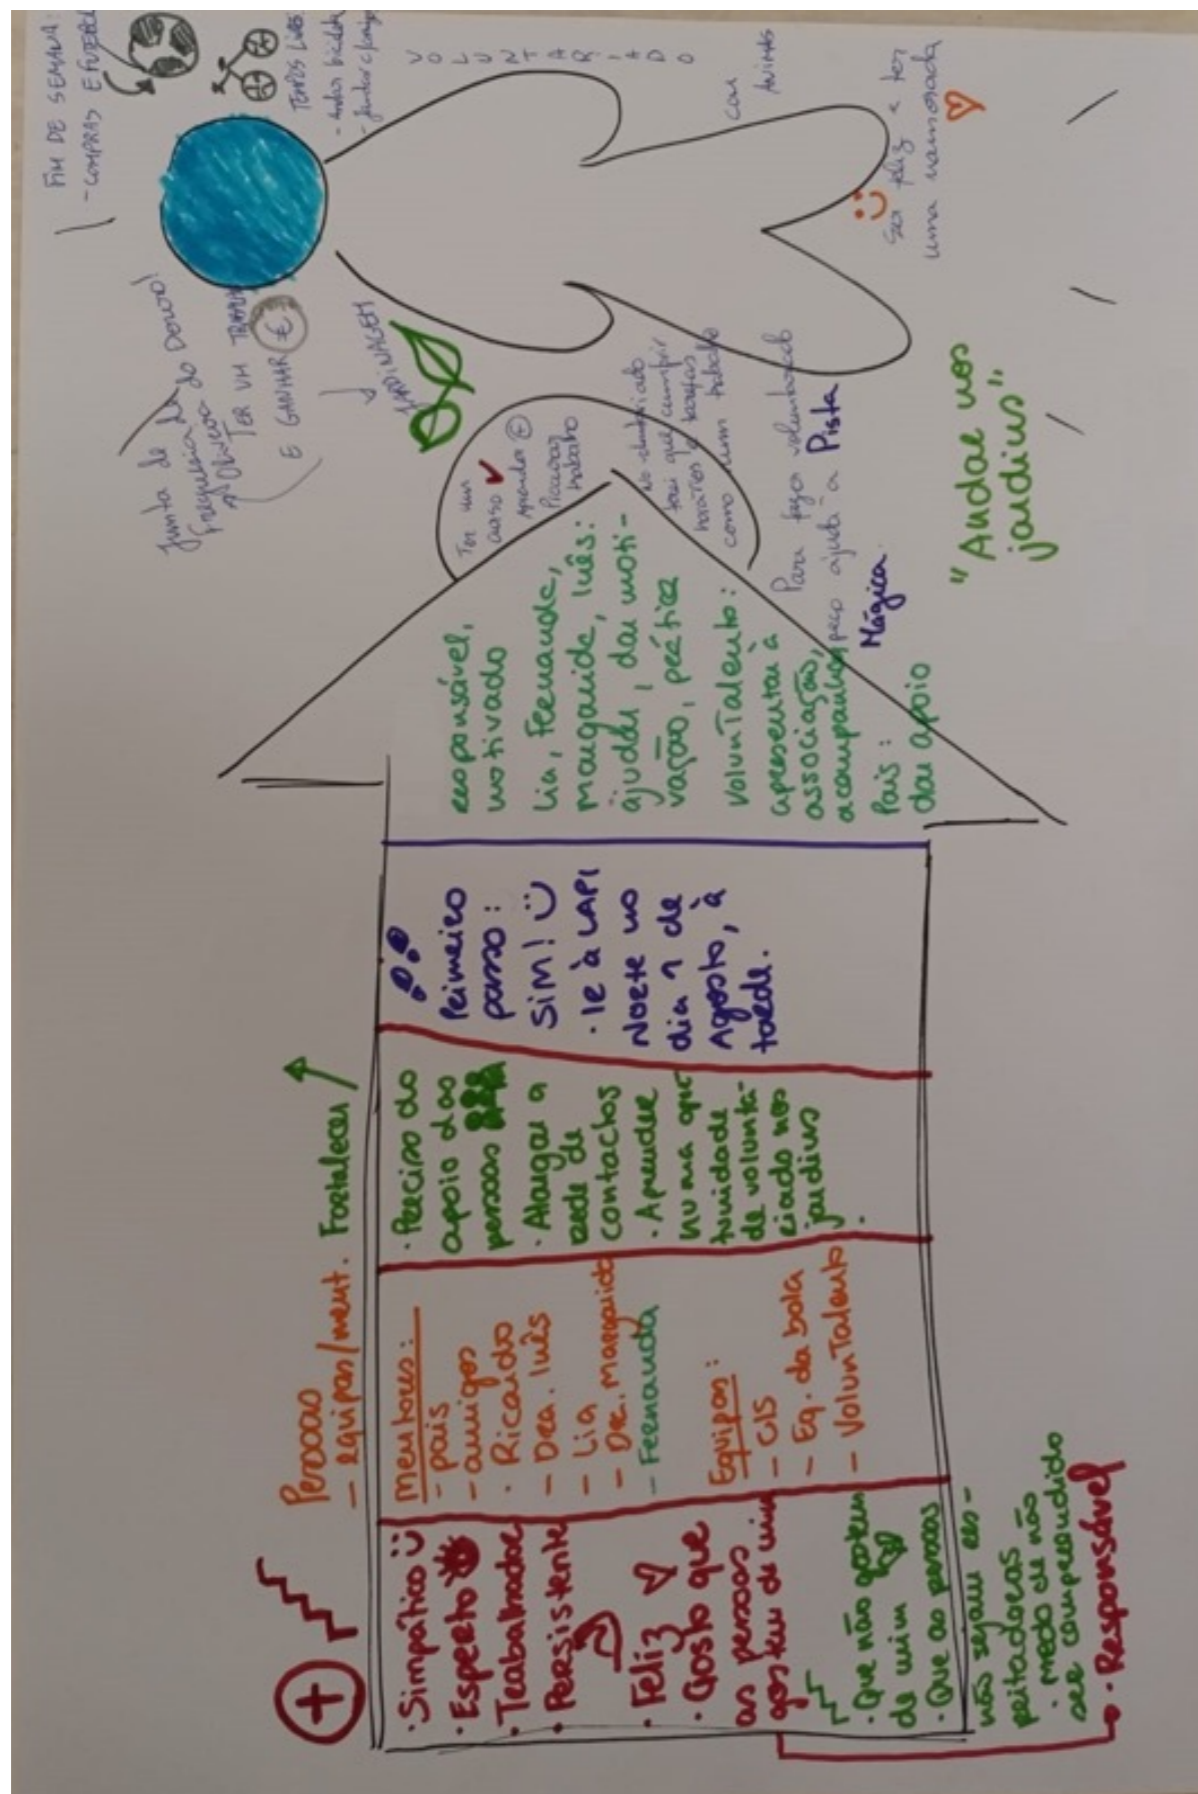 +
· Simpático
· Esperto
· Trabalhador
· Persistente
· Feliz
· Gosto que
as pessoas
gostem de mim
· Que não gostem
de mim
· Que as pessoas
não sejam res-
peitadoras
· medo de não
ser compreendido
· Responsável
Pessoas
- equipas/ment.
mentores:
- pais
- amigos
· Ricardo
- Dra. Inês
- Lia
- Dra. Margarida
- Fernanda
Equipas:
- CIS
- Eq. da bola
- VolunTalento
Fortalecer
· Preciso do
apoio das
pessoas
· Alargar a
rede de
contactos
· Aprender
numa opor-
tunidade
de volunta-
riado nos
jardins
Primeiro
passo:
SIM!
· Ir à LAPI
Norte no
dia 1 de
Agosto, à
tarde.
responsável,
motivado
Lia, Fernanda,
Margarida, Inês:
ajudar, dar moti-
vação, prática
VolunTalento:
apresentar à
associação,
acompanhar
Pais:
dar apoio
Ter um
curso
Aprender
Procurar
trabalho
No voluntariado
tem que cumprir
horários e tarefas
como num trabalho
Para fazer voluntariado
peço ajuda à Pista
Mágica.
"Andar nos
jardins"
Junta de
Freguesia do Douro!
TER UM
E GANHAR €
JARDINAGEM
FIM DE SEMANA:
- COMPRAS E FUTEBOL
TEMPOS LIVRES
- Andar bicicleta
VOLUNTARIADO
com
Animais
Ser feliz e ter
uma namorada